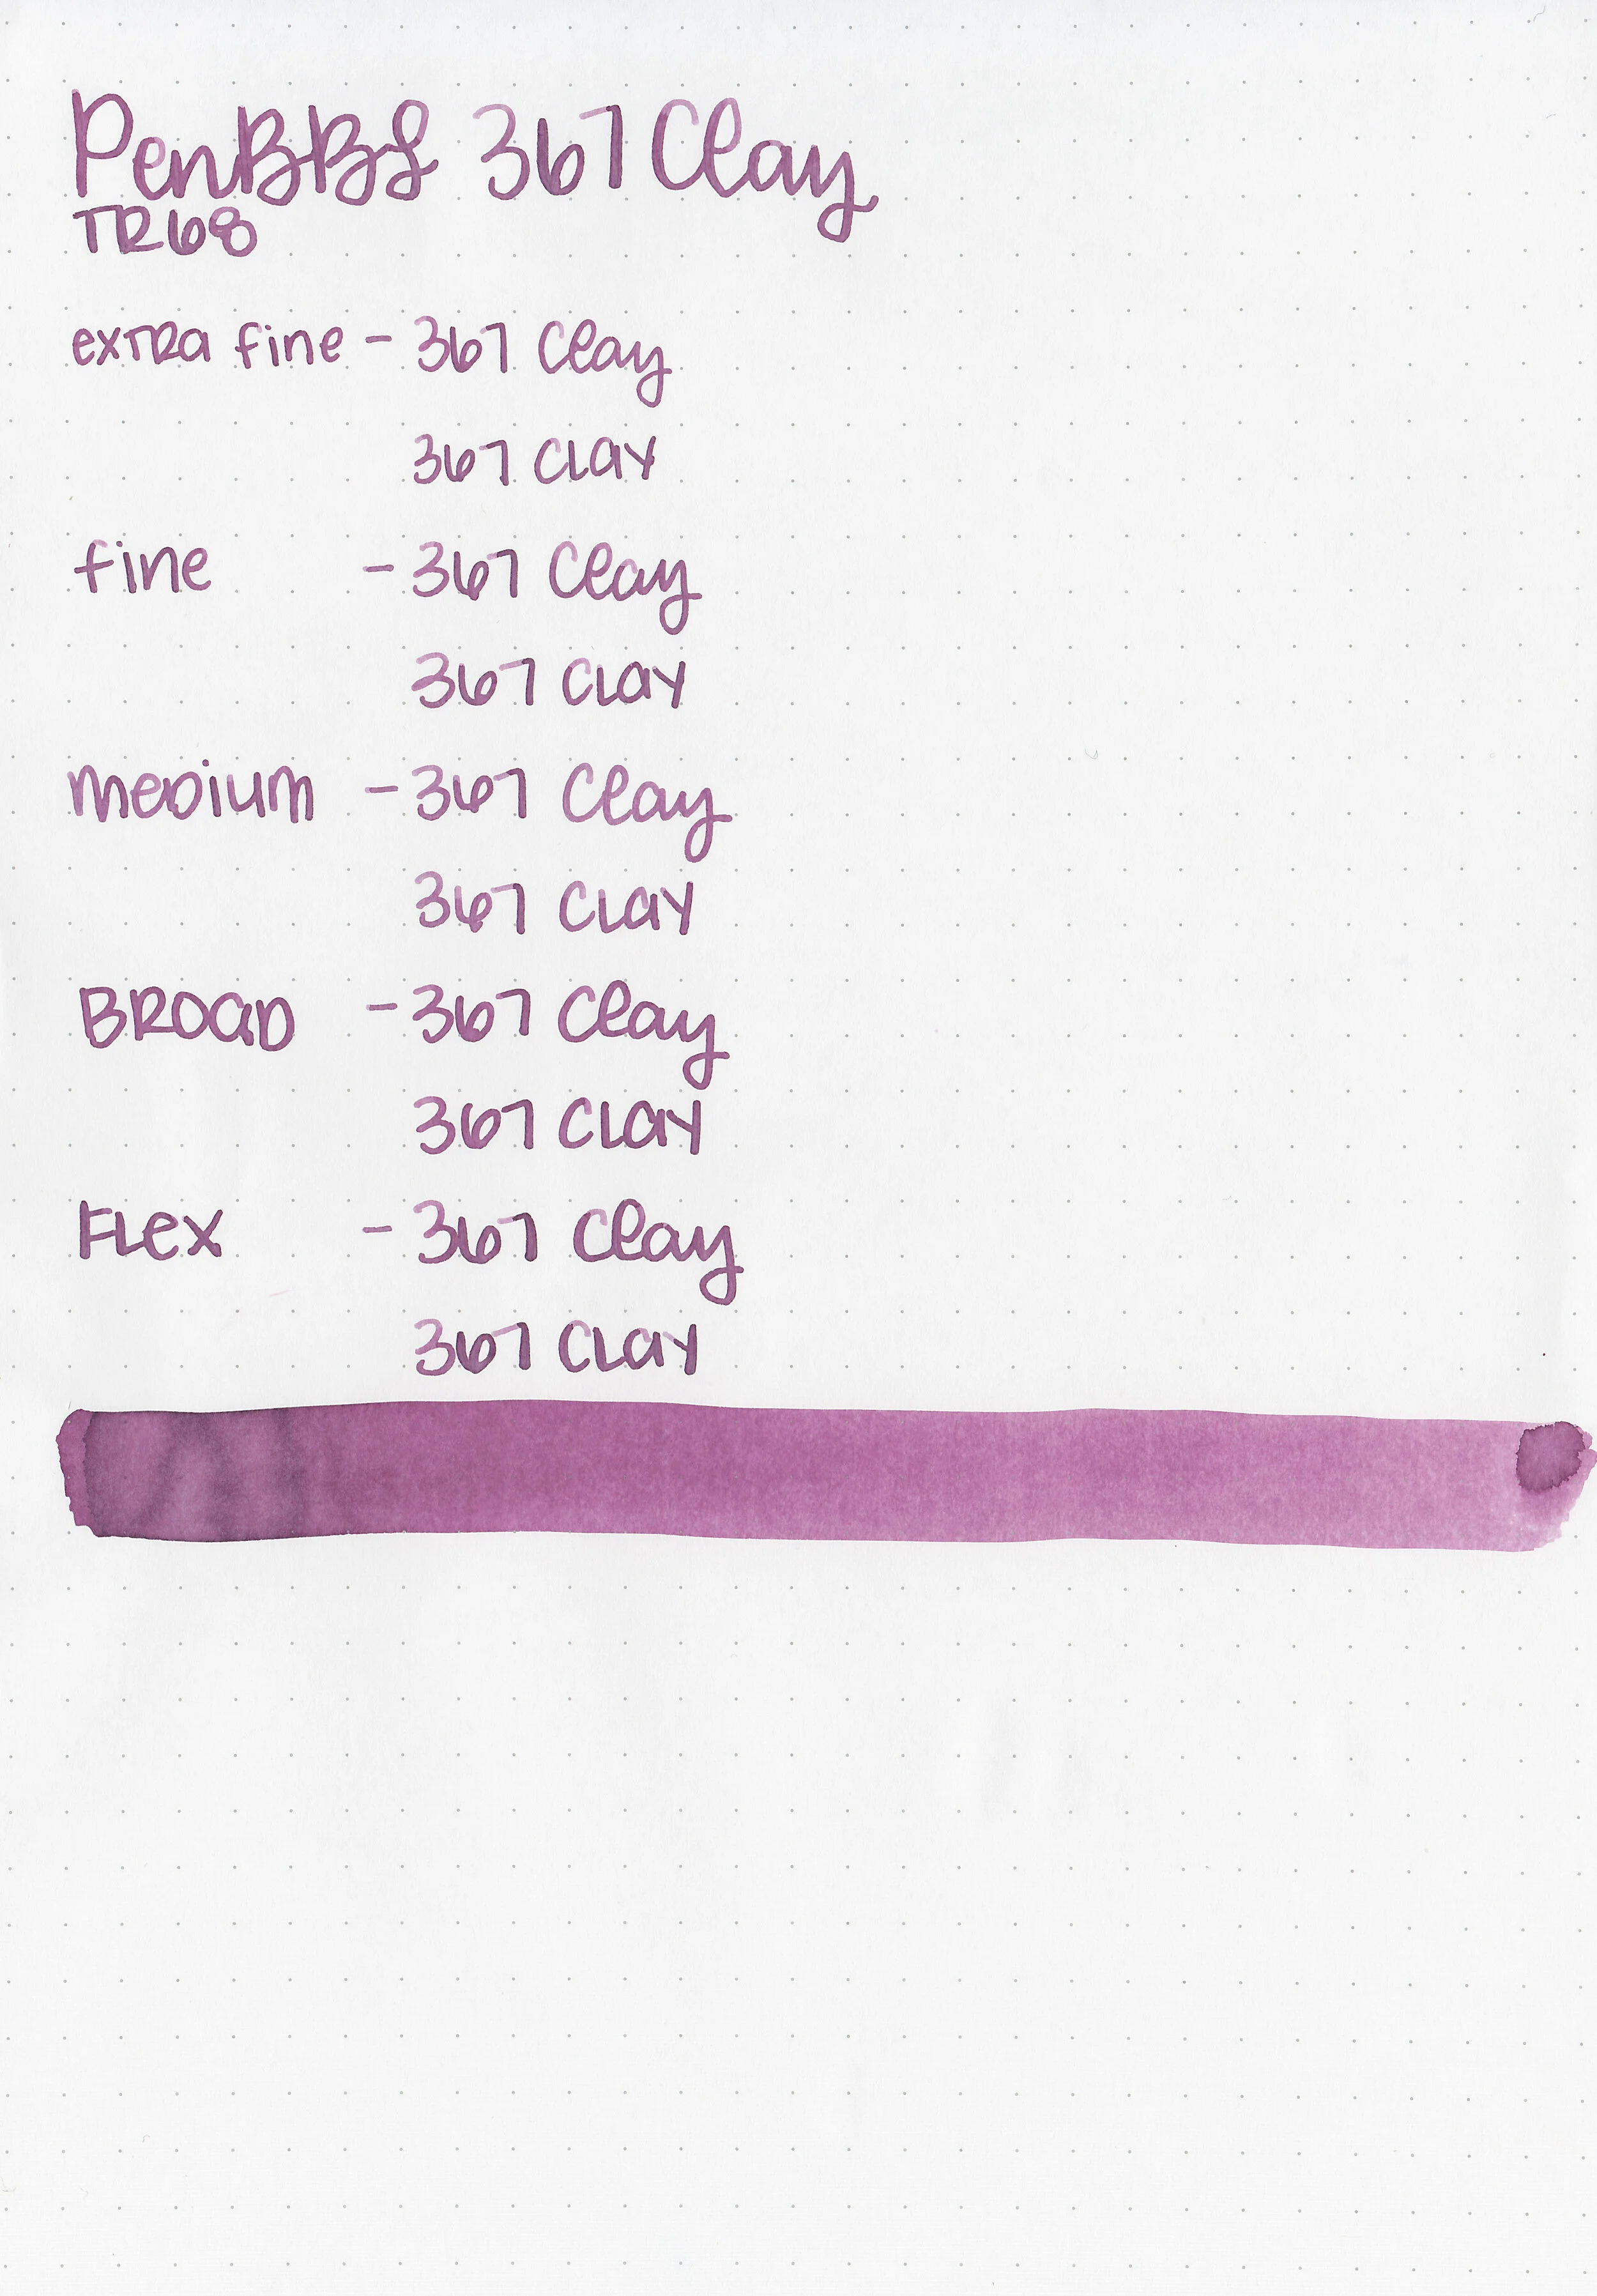 PenBBS 367 Clay
TR68
extra fine - 367 Clay
367 Clay
fine - 367 Clay
367 Clay
medium - 367 Clay
367 Clay
Broad - 367 Clay
367 Clay
Flex - 367 Clay
367 Clay